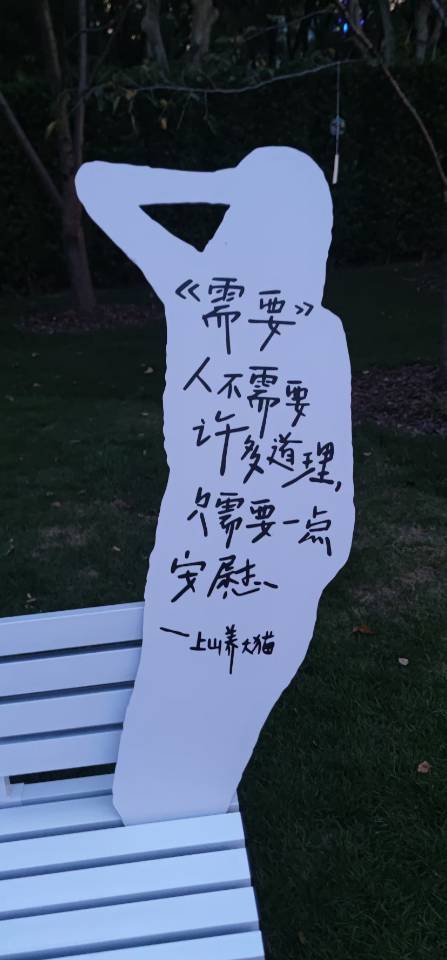 《需要》
人不需要
许多道理,
只需要一点
安慰
—上山养大猫